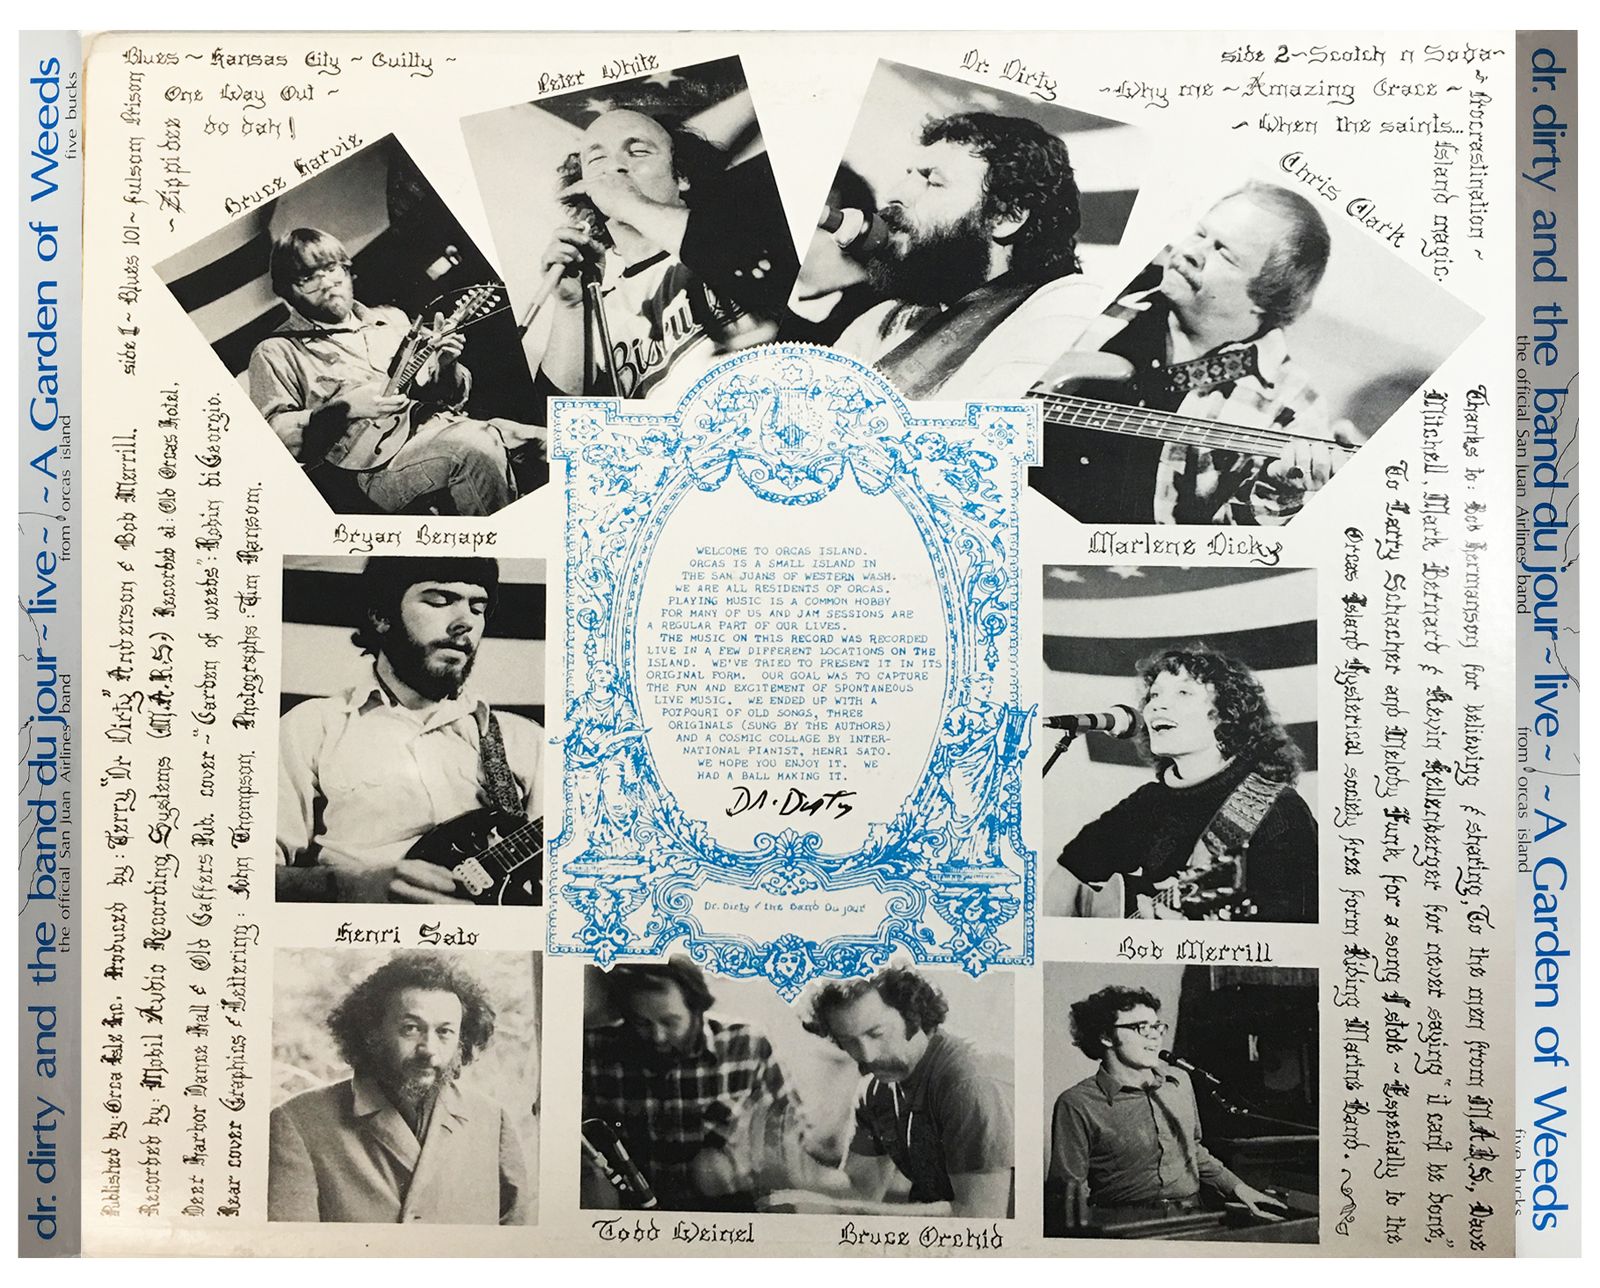 dr. dirty and the band du jour ~ live ~ ~ A Garden of Weeds
the official San Juan Airlines band
from orcas island
five bucks
side 1 ~ Blues 101 ~ fulsom Prison
Blues ~ Kansas City ~ Guilty ~
One Way Out ~
~ Zippi dee
do dah!
side 2 ~ Scotch n Soda ~
~ Why me ~ Amazing Grace ~
~ When the saints...
~ Procrastination ~
Island magic.
Bruce Harvie
Peter White
Dr. Dirty
Chris Clark
Published by: Orca Isle Inc. Produced by: Terry "Dr Dirty" Anderson & Bob Merrill.
Recorded by: Mobil Audio Recording Systems (M.A.R.S.) Recorded at: Old Orcas Hotel,
Deer Harbor Dance Hall & Old Gaffers Pub. cover ~ "Garden of weeds": Robin diGeorgio.
Rear cover Graphics & Lettering: John Thompson. Photographs: Tim Ransom.
Bryan Benape
Marlene Dicky
WELCOME TO ORCAS ISLAND.
ORCAS IS A SMALL ISLAND IN
THE SAN JUANS OF WESTERN WASH.
WE ARE ALL RESIDENTS OF ORCAS.
PLAYING MUSIC IS A COMMON HOBBY
FOR MANY OF US AND JAM SESSIONS ARE
A REGULAR PART OF OUR LIVES.
THE MUSIC ON THIS RECORD WAS RECORDED
LIVE IN A FEW DIFFERENT LOCATIONS ON THE
ISLAND. WE'VE TRIED TO PRESENT IT IN ITS
ORIGINAL FORM. OUR GOAL WAS TO CAPTURE
THE FUN AND EXCITEMENT OF SPONTANEOUS
LIVE MUSIC. WE ENDED UP WITH A
POTPOURI OF OLD SONGS, THREE
ORIGINALS (SUNG BY THE AUTHORS)
AND A COSMIC COLLAGE BY INTER-
NATIONAL PIANIST, HENRI SATO.
WE HOPE YOU ENJOY IT. WE
HAD A BALL MAKING IT.
Dr. Dirty
Dr. Dirty & the Band Du jour
Henri Sato
Bob Merrill
Todd Weinel
Bruce Orchid
Thanks to: Bob Hermanson for believing & sharing, To the men from M.A.R.S., Dave
Mitchell, Mark Bernard & Kevin Kellenberger for never saying "it cant be done,"
To Larry Schacher and Melody Funk for a song I stole ~ Especially to the
Orcas Island Hysterical society free form Riding Marine Band.
dr. dirty and the band du jour ~ live ~ ~ A Garden of Weeds
the official San Juan Airlines band
from orcas island
five bucks